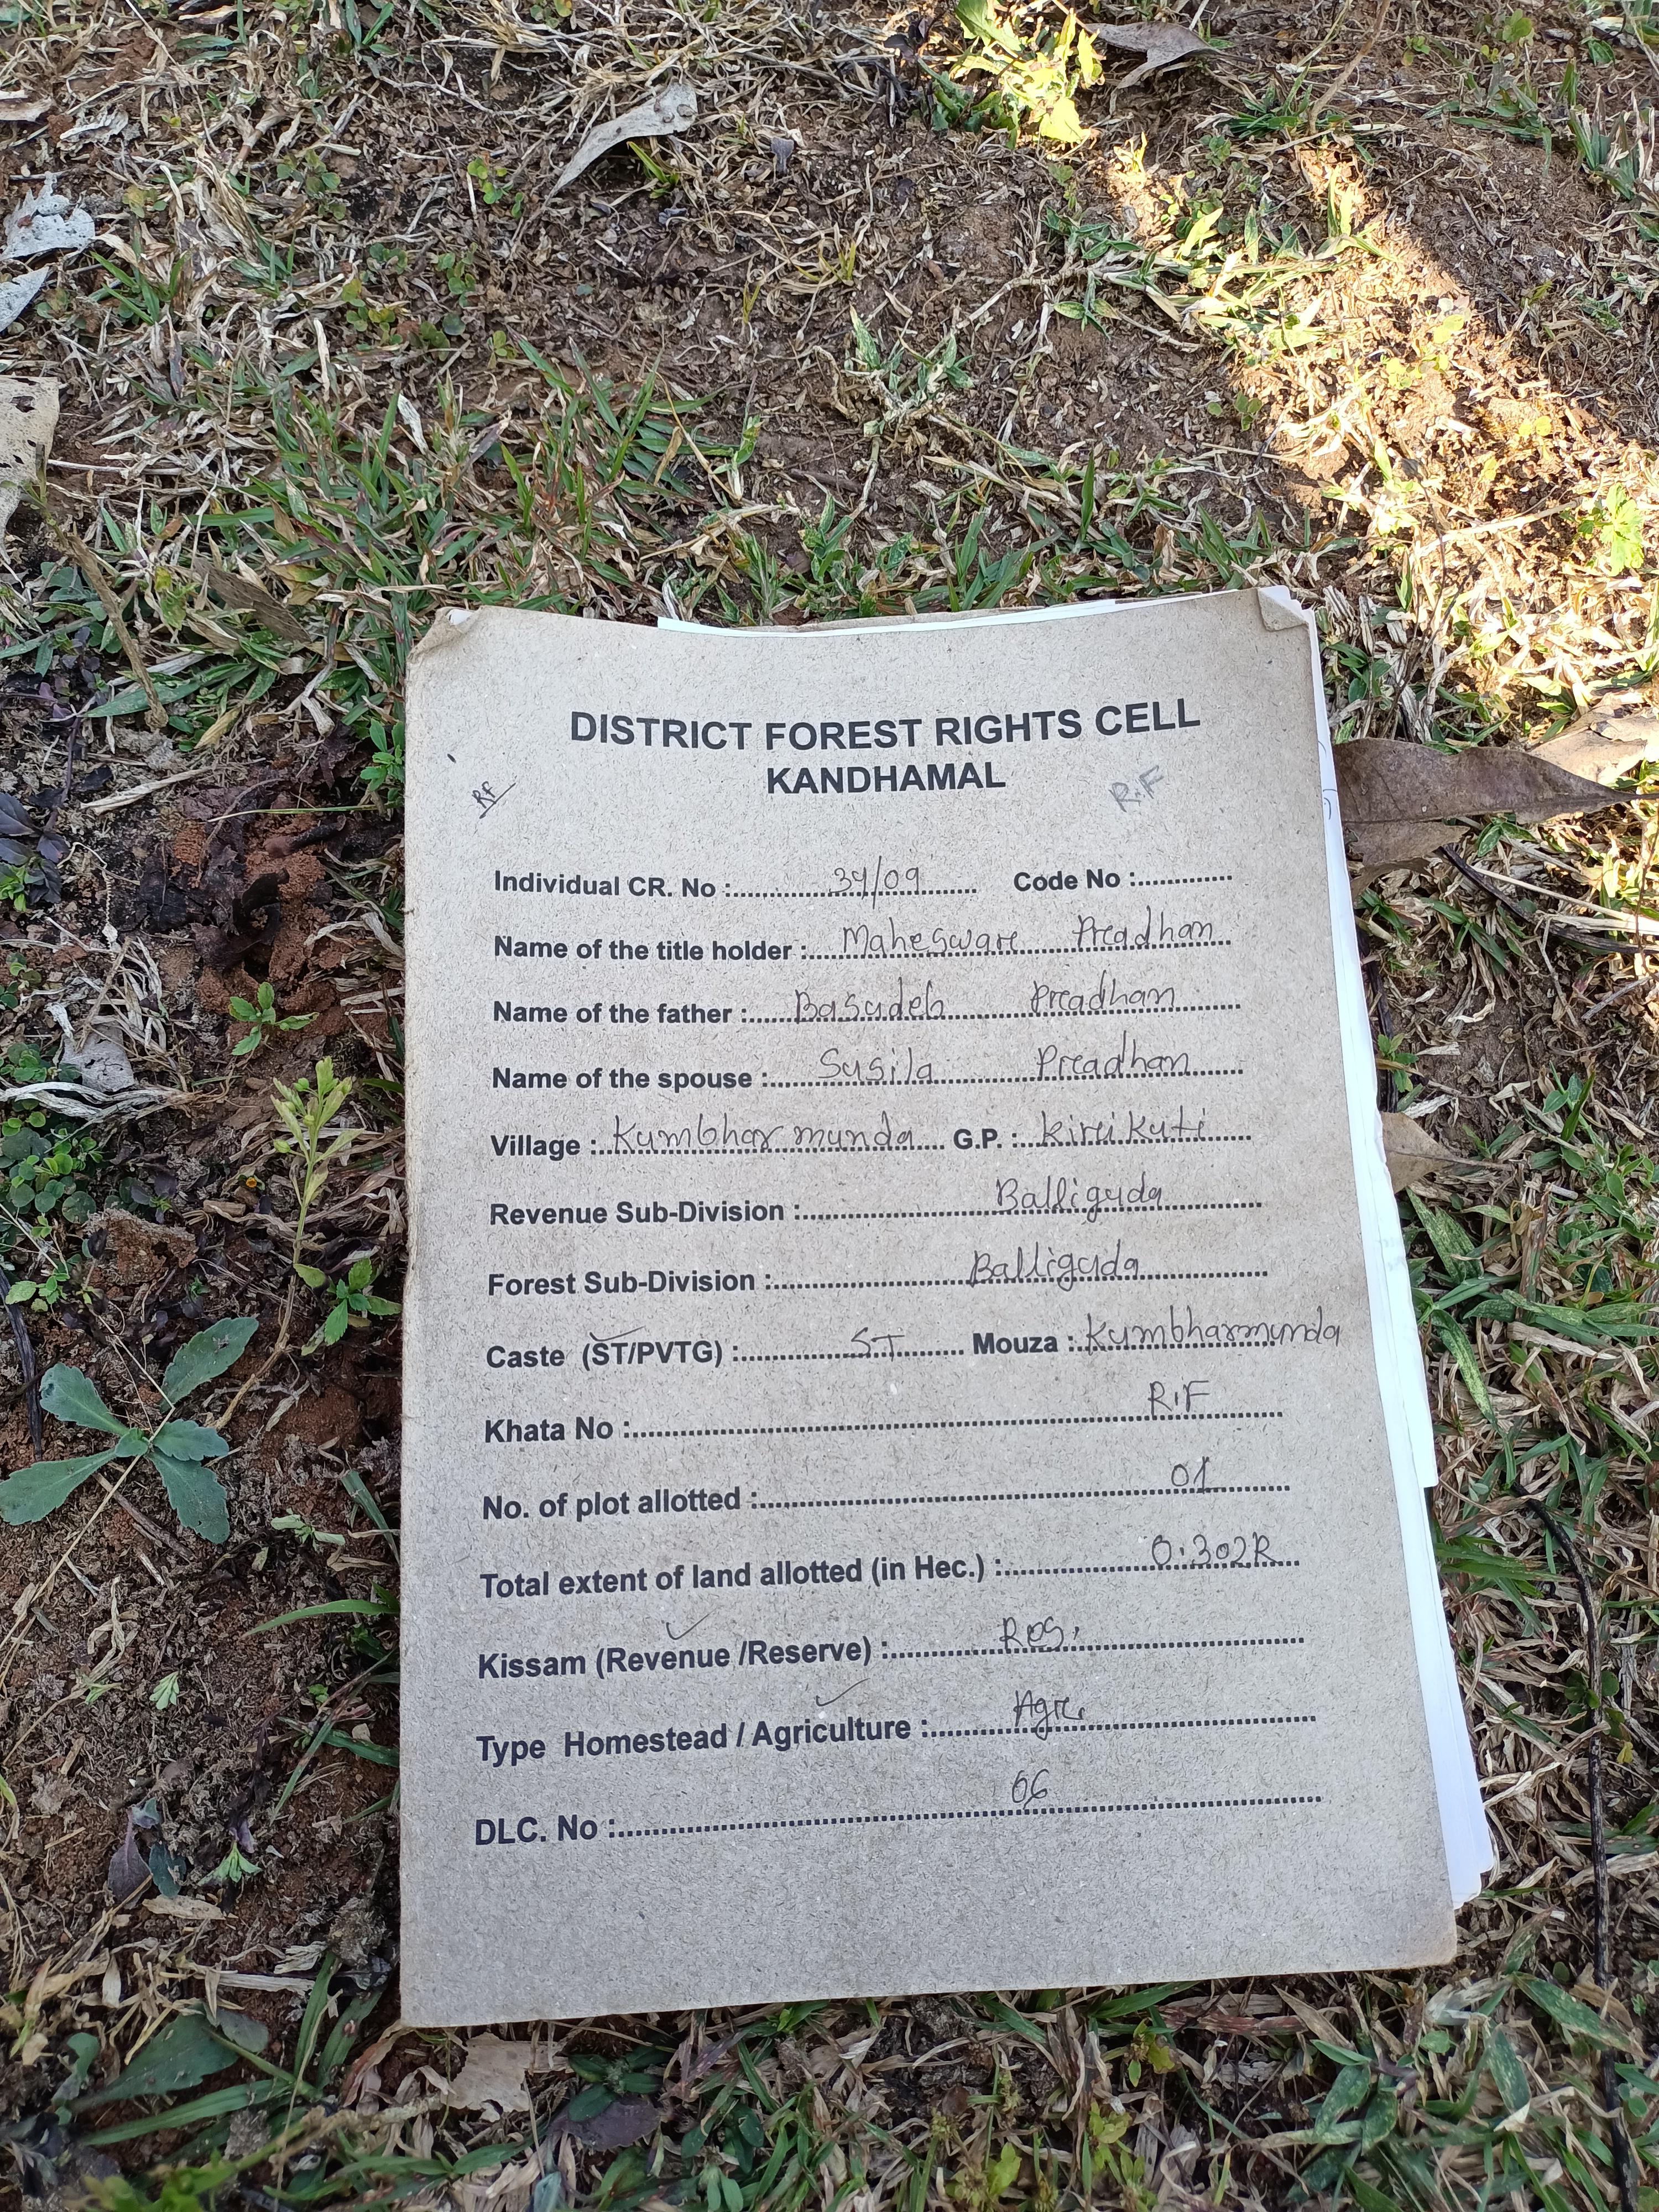 DISTRICT FOREST RIGHTS CELL
KANDHAMAL
RF
R.F
Individual CR. No : 34/09 Code No :
Name of the title holder : Maheswar Pradhan
Name of the father : Basudeb Pradhan
Name of the spouse : Susila Pradhan
Village : Kumbharmunda G.P. : Kirikuti
Revenue Sub-Division : Balliguda
Forest Sub-Division : Balliguda
Caste (ST/PVTG) : ST Mouza : Kumbharmunda
Khata No : R.F
No. of plot allotted : 01
Total extent of land allotted (in Hec.) : 0.302R
Kissam (Revenue /Reserve) : Res.
Type Homestead / Agriculture : Agri
DLC. No : 06